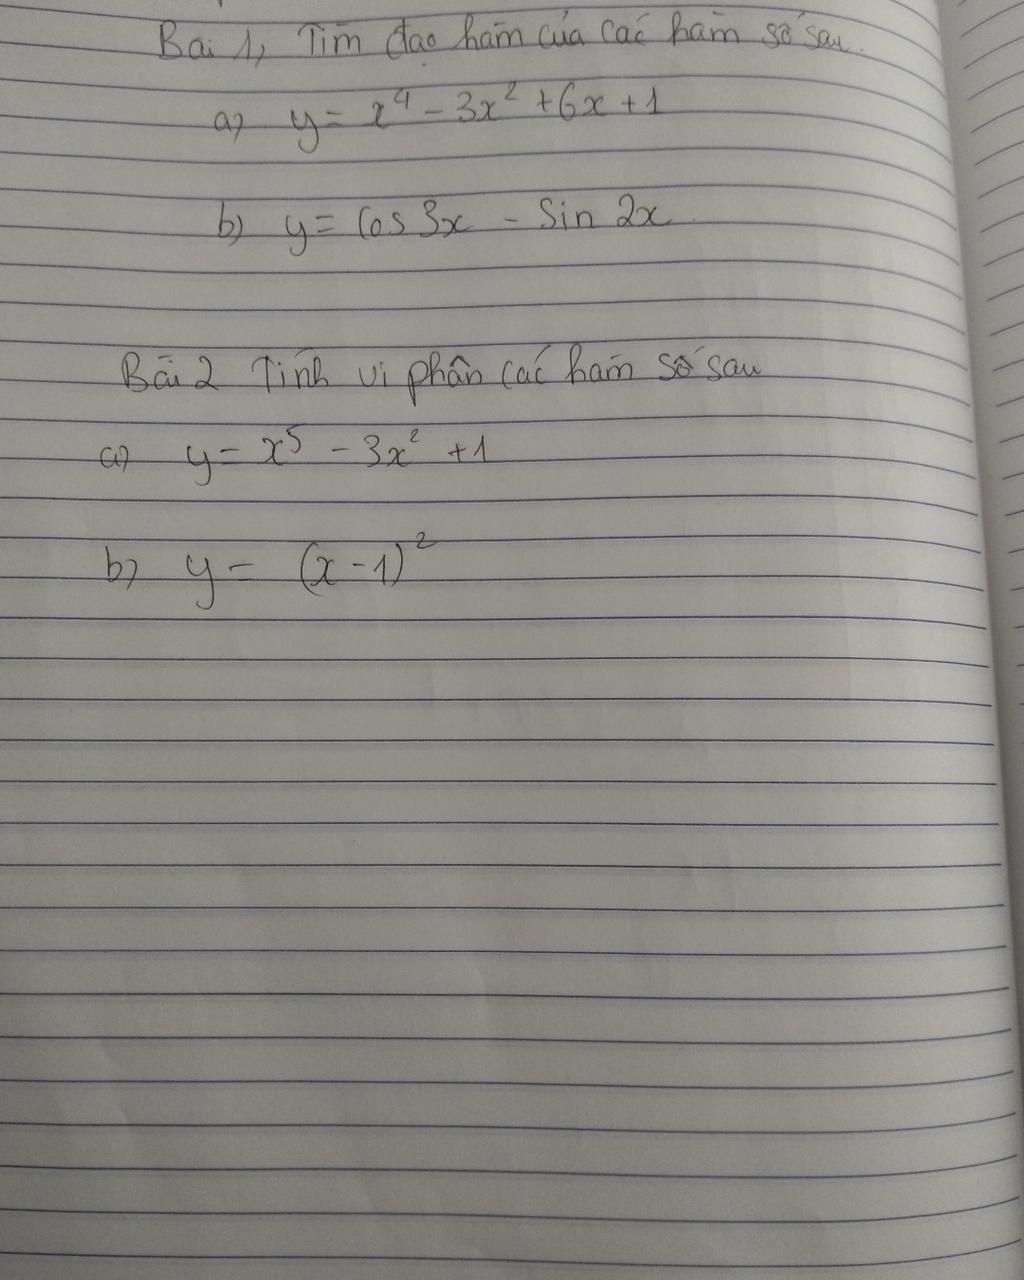 Bài 1, Tìm đạo hàm của các hàm số sau.
a) y = x⁴ - 3x² + 6x + 1
b) y = Cos 3x - Sin 2x
Bài 2 Tính vi phân các hàm số sau
a) y = x⁵ - 3x² + 1
b) y = (x - 1)²